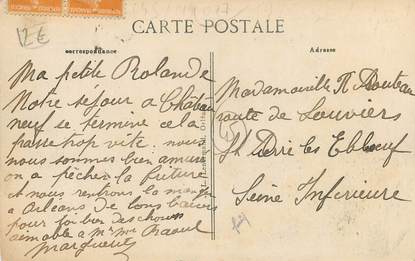 12€
CARTE POSTALE
Correspondance
Adresse
Ma petite Rolande
Notre séjour a Château
neuf se termine cela
passe trop vite. nous
nous sommes bien amusé
on a pêcher la friture
et nous rentrons la
a Orléans de bons baisers
pour toi bien des choses
aimable a Mr Mme Raoul
Marguerite
Mademoiselle R.
route de Louviers
St Pierre les Elboeuf
Seine Inferieure